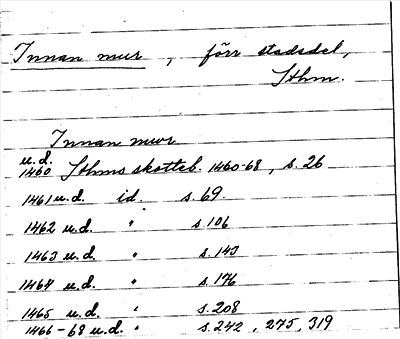 Innan mur, förr stadsdel,
Sthm.
Innan mwr
u.d.
1460 Sthms skotteb. 1460-68, s. 26
1461 u.d. id. s. 69.
1462 u.d. " s. 106
1463 u.d. " s. 143
1464 u.d. " s. 176
1465 u.d. " s. 208
1466-68 u.d. " s. 242, 275, 319